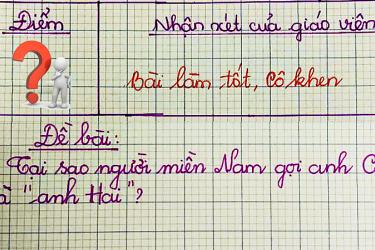 Điểm
Nhận xét của giáo viên
Bài làm tốt, Cô khen
Đề bài:
Tại sao người miền Nam gọi anh
"anh Hai"?